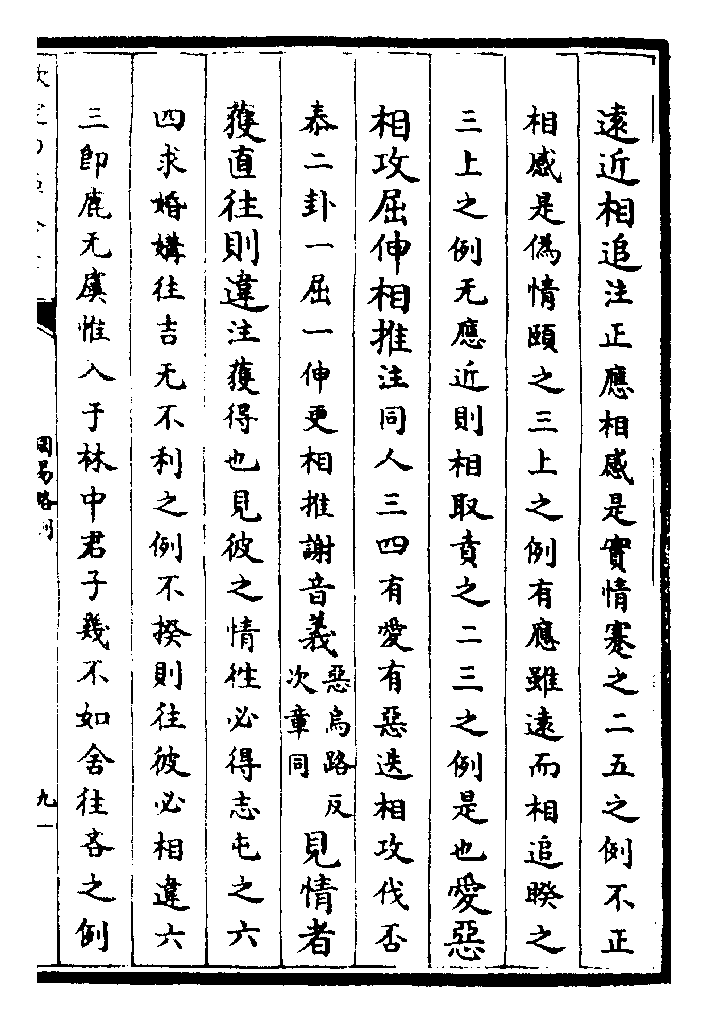 遠近相追注正應相感是實情蹇之二五之例不正
相感是偽情頤之三上之例有應雖遠而相追睽之
三上之例无應近則相取賁之二三之例是也愛惡
相攻屈伸相推注同人三四有愛有惡迭相攻伐否
泰二卦一屈一伸更相推謝音義惡烏路反次章同見情者
獲直往則違注獲得也見彼之情徃必得志屯之六
四求婚媾往吉无不利之例不揆則往彼必相違六
三即鹿无虞惟入于林中君子幾不如舍往吝之例
周易略例
九